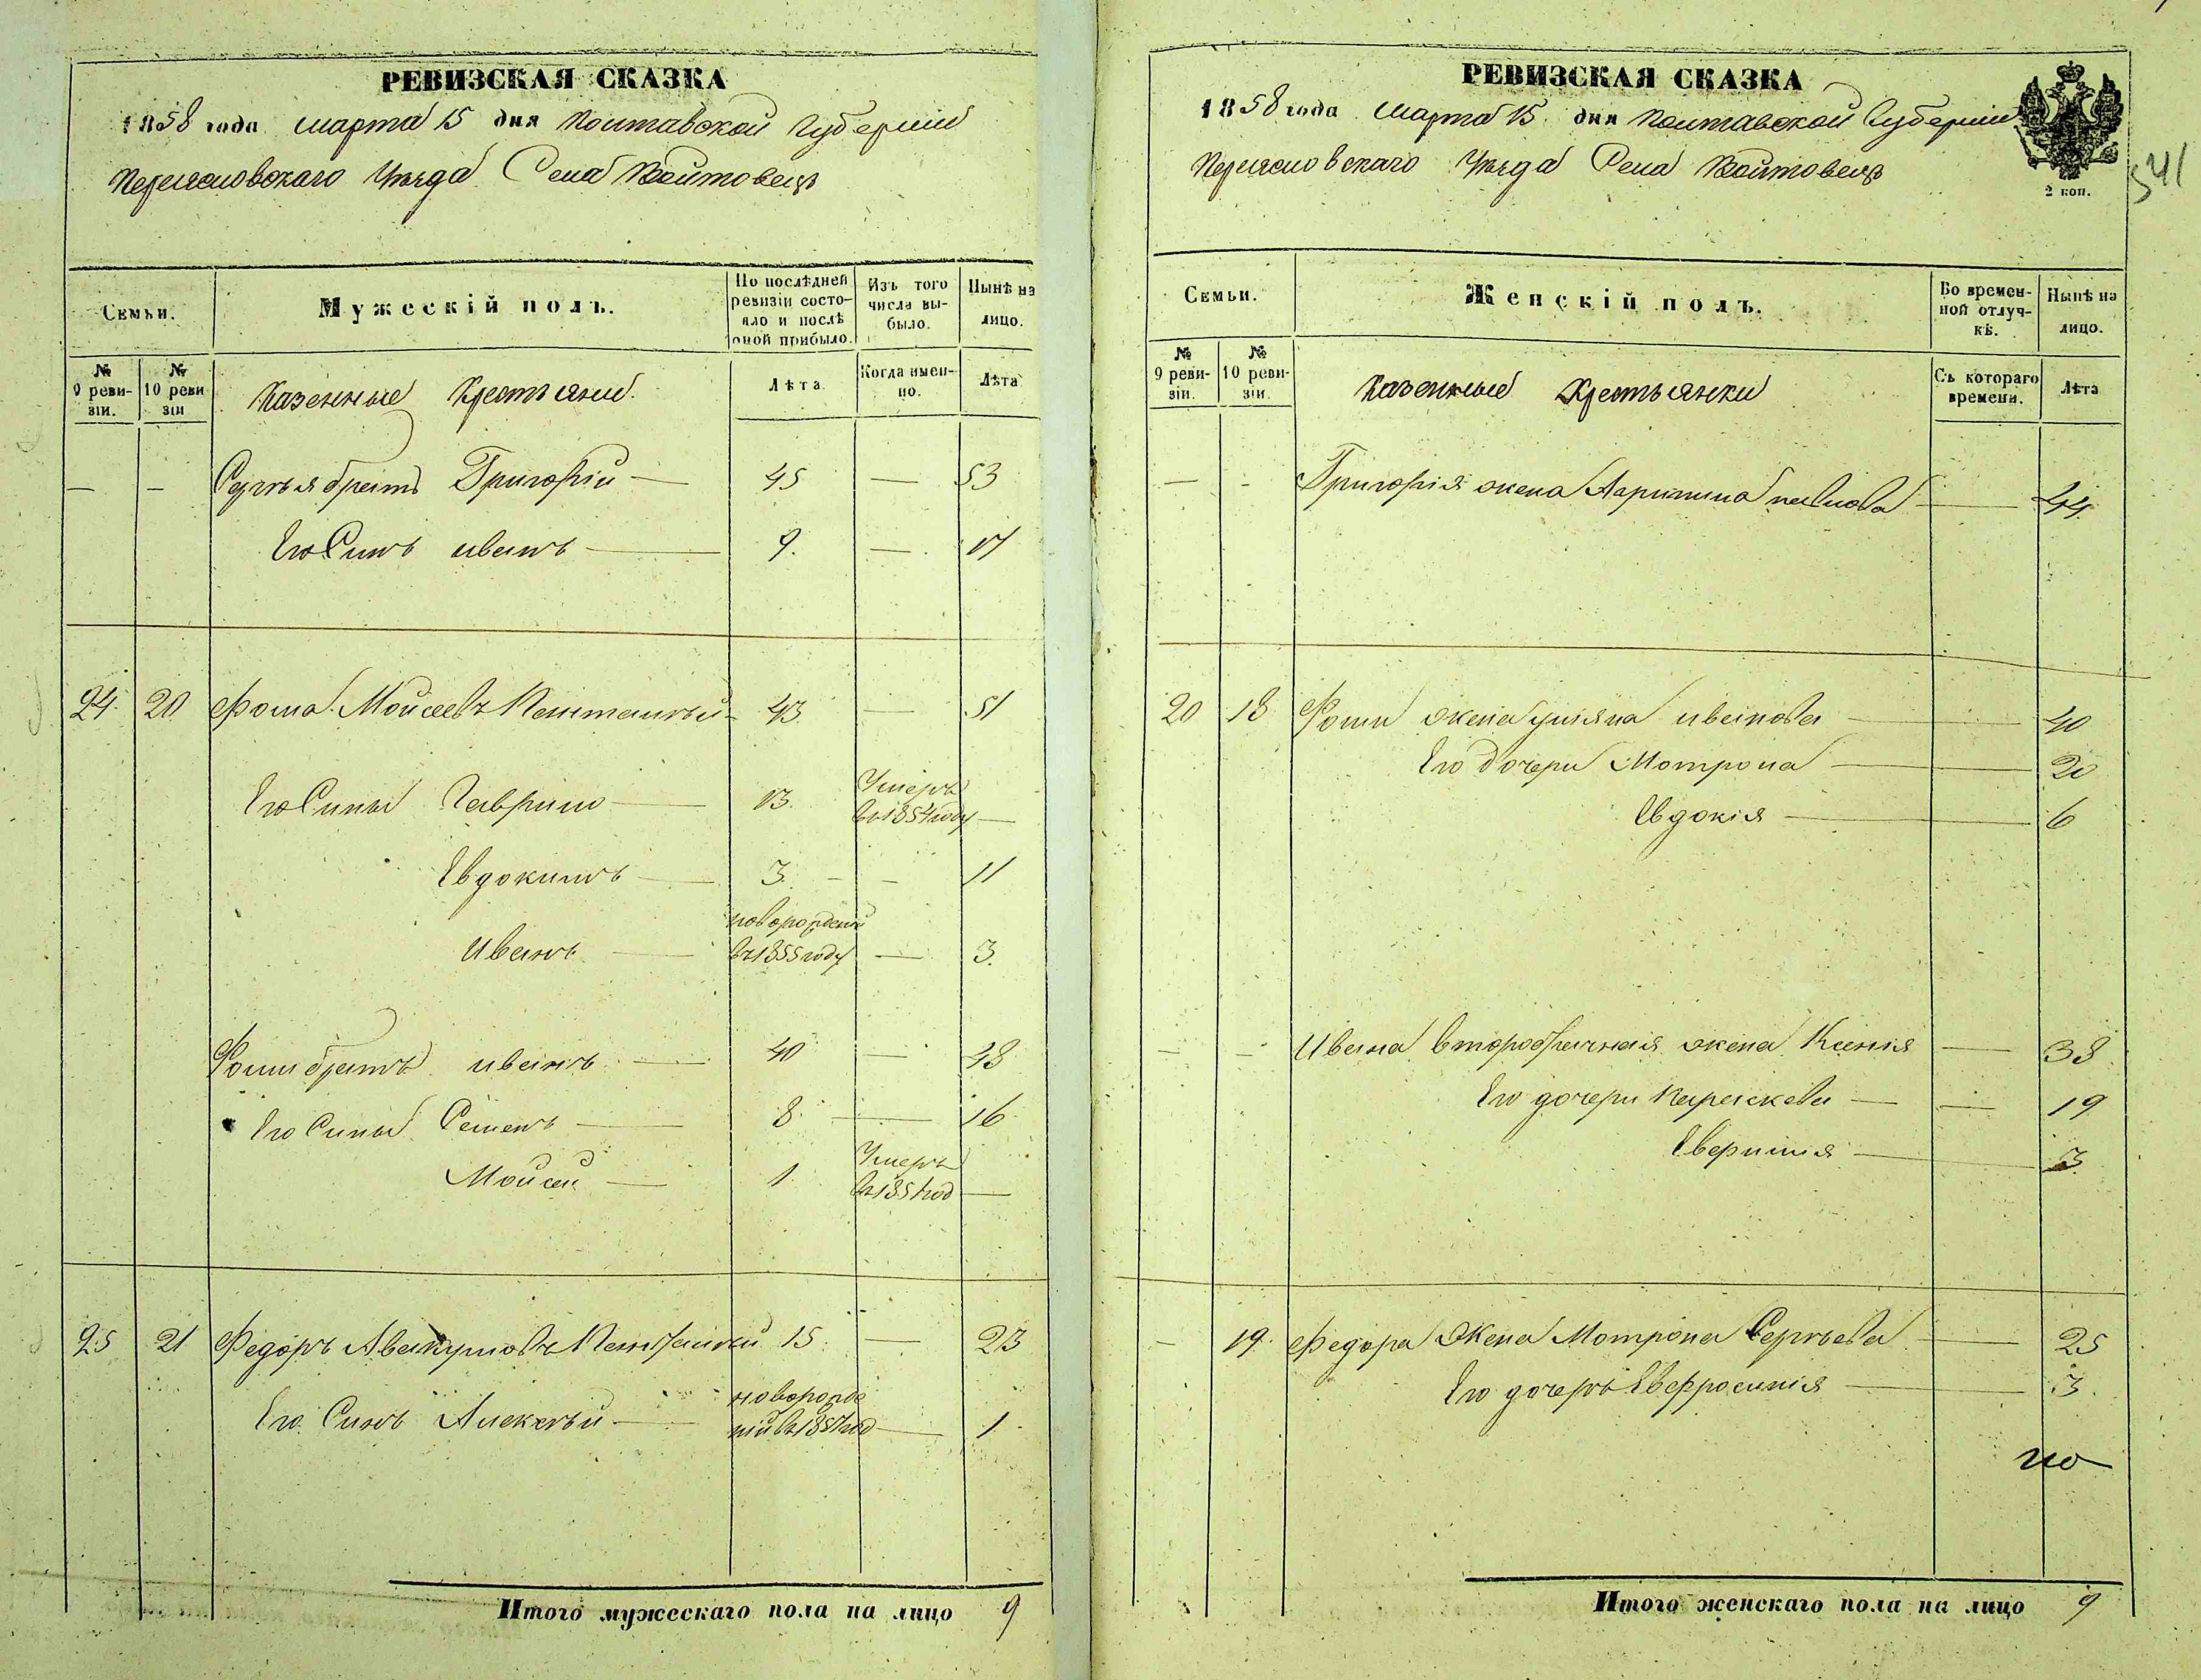 РЕВИЗСКАЯ СКАЗКА
1858 года марта 15 дня Полтавской Губерніи
Переясловского Уезда Села Войтовець
Семьи.
Мужескій полъ.
По послѣдней ревизіи состояло и послѣ оной прибыло.
Изъ того числа выбыло.
Нынѣ на лицо.
№ 9 ревизіи.
№ 10 ревизіи
Казенные Крестьяни.
Лѣта
Когда именно.
Лѣта
— — Сергея братъ Григорій — 45 — 53
Его Синъ иванъ — 9. — 17
24. 20 Фома Мойсеевъ — 43 — 51
Его Сины Гаврило — 13. Умеръ въ 1854 году —
Евдокимъ — 3. — — 11
Иванъ — новорожденъ въ 1855 году — 3.
Фоми братъ иванъ — 40 — 48
Его Сины Семенъ — 8. — 16
Мойсей — 1. Умеръ —
25 21 Федоръ Авакумовъ 15. — 23
Его Синъ Алексѣй — — 1
Итого мужескаго пола на лицо 9
РЕВИЗСКАЯ СКАЗКА
1858 года марта 15 дня Полтавской Губерніи
Переясловского Уезда Села Войтовець
2 коп.
541
Семьи.
Женскій полъ.
Во временной отлучкѣ.
Нынѣ на лицо.
№ 9 ревизіи.
№ 10 ревизіи.
Казенные Крестьянки
Съ котораго времени.
Лѣта
— - Григорія жена павлова — 44
20 18 Фоми жена уліяна иванова — 40
Его дочери Мотрона — 20
Евдокія — 6
— — Ивана второбрачная жена Ксенія — 38
Его дочери параскева — — 19
— 3
— 19. Федора Жена Мотрона Сергѣева — 25
Его дочеръ Евфросинія — 3.
Итого женскаго пола на лицо 9